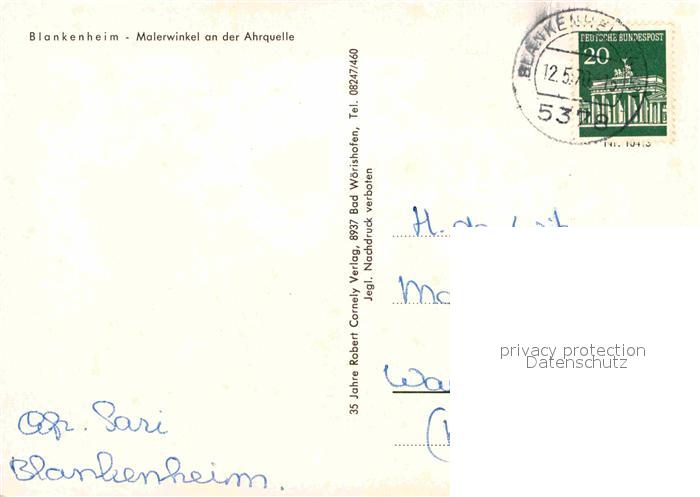 Blankenheim - Malerwinkel an der Ahrquelle
35 Jahre Robert Cornely Verlag, 8937 Bad Wörishofen, Tel. 08247/460
Jegl. Nachdruck verboten
DEUTSCHE BUNDESPOST
20
BLANKENHEI
12.5.70
5378
Nr. 1041.3
privacy protection
Datenschutz
Sari
Blankenheim.